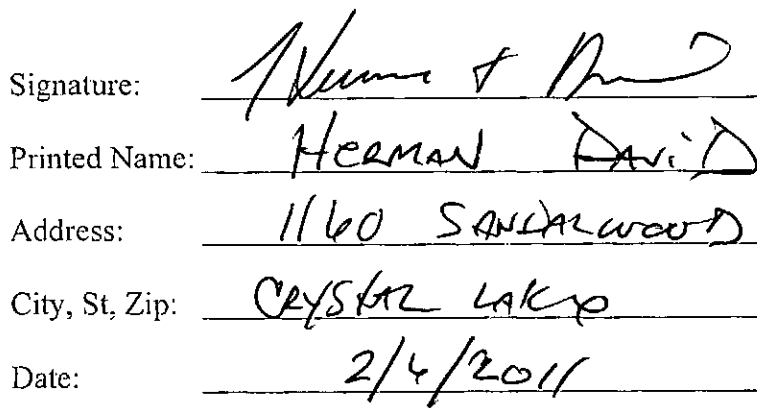 Signature:
Printed Name: HERMAN DAViD
Address: 1160 SANDALWOOD
City, St, Zip: CRYSTAL LAKE
Date: 2/6/2011